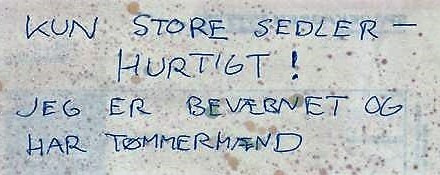 KUN STORE SEDLER —
HURTIGT !
JEG ER BEVÆBNET OG
HAR TØMMERMÆND